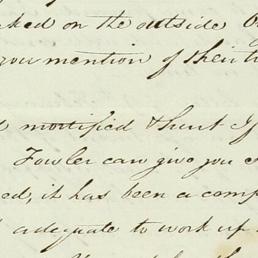 ked on the outside
your mention of their
mortified & hurt If
Fowler can give you
ed, it has been a comp
adequate to work up